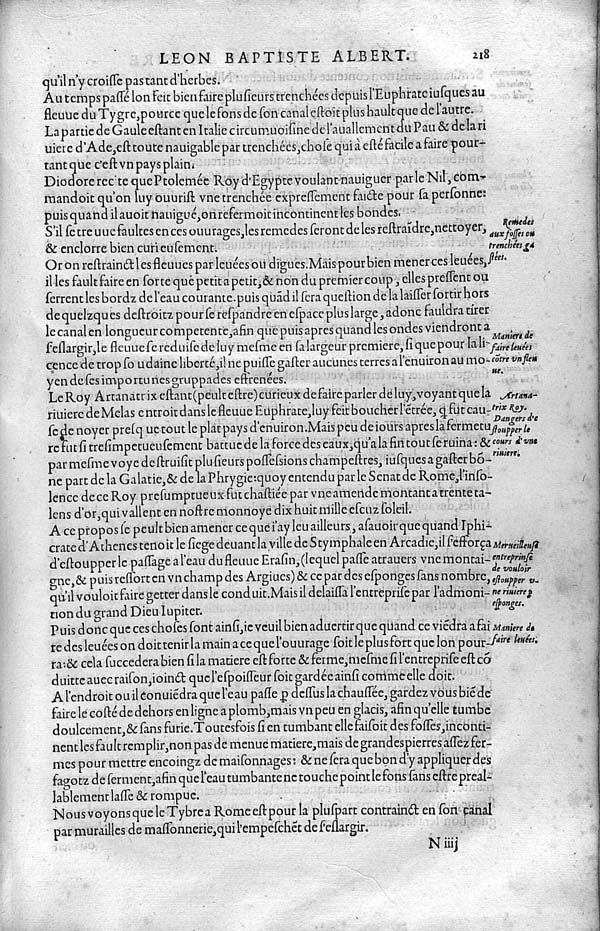 LEON BAPTISTE ALBERT. 218
qu'il n'y croiſſe pas tant d'herbes.
Au temps paſſé lon feit bien faire pluſieurs trenchées depuis l'Euphrate iuſques au
fleuue du Tygre, pource que le fons de ſon canal eſtoit plus hault que de l'autre.
La partie de Gaule eſtant en Italie circumuoiſine de l'auallement du Pau & de la ri
uiere d'Ade, eſt toute nauigable par trenchées, choſe qui à eſté facile a faire pour-
tant que c'eſt vn pays plain.
Diodore recite que Ptolemée Roy d'Egypte voulant nauiguer par le Nil, com-
mandoit qu'on luy ouuriſt vne trenchée expreſſement faicte pour ſa perſonne:
puis quand il auoit nauigué, on refermoit incontinent les bondes.
S'il ſe treuue faultes en ces ouurages, les remedes ſeront de les reſtraĩdre, nettoyer,
& enclorre bien curieuſement.
Remedes
aux foſſes ou
trenchées ga
ſtées.
Or on reſtrainct les fleuues par leuées ou digues. Mais pour bien mener ces leuées,
il les fault faire en ſorte que petit a petit, & non du premier coup, elles preſſent ou
ſerrent les bordz de l'eau courante. puis quãd il ſera queſtion de la laiſſer ſortir hors
de quelzques deſtroitz pour ſe reſpandre en eſpace plus large, adonc fauldra tirer
le canal en longueur competente, afin que puis apres quand les ondes viendront a
ſ'eſlargir, le fleuue ſe reduiſe de luy meſme en ſa largeur premiere, ſi que pour la li-
cence de trop ſoudaine liberté, il ne puiſſe gaſter aucunes terres a l'enuiron au mo-
yen de ſes importunes gruppades effrenées.
Maniere de
faire leuées
cõtre vn fleu
ue.
Le Roy Artanatrix eſtant (peult eſtre) curieux de faire parler de luy, voyant que la
riuiere de Melas entroit dans le fleuue Euphrate, luy feit boucher l'ẽtrée, q̃ fut cau-
ſe de noyer preſque tout le plat pays d'enuiron. Mais peu de iours apres la fermetu
re fut ſi treſimpetueuſement battue de la force des eaux, qu'a la fin tout ſe ruina: &
par meſme voye deſtruiſit pluſieurs poſſeſsions champeſtres, iuſques a gaſter bõ-
ne part de la Galatie, & de la Phrygie: quoy entendu par le Senat de Rome, l'inſo-
lence de ce Roy preſumptueux fut chaſtiée par vne amende montant a trente ta-
lens d'or, qui vallent en noſtre monnoye dix huit mille eſcuz ſoleil.
Artana-
trix Roy.
Dangers d'e
ſtoupper le
cours d'vne
riuiere.
A ce propos ſe peult bien amener ce que i'ay leu ailleurs, aſauoir que quand Iphi-
crate d'Athenes tenoit le ſiege deuant la ville de Stymphale en Arcadie, il ſ'efforça
d'eſtoupper le paſſage a l'eau du fleuue Eraſin, (lequel paſſe atrauers vne montai-
gne, & puis reſſort en vn champ des Argiues) & ce par des eſponges ſans nombre,
qu'il vouloit faire getter dans le conduit. Mais il delaiſſa l'entrepriſe par l'admoni-
tion du grand Dieu Iupiter.
Merueilleuſe
entreprinſe
de vouloir
eſtoupper v-
ne riuiere p
eſponges.
Puis donc que ces choſes ſont ainſi, ie veuil bien aduertir que quand ce viẽdra a fai
re des leuées on doit tenir la main a ce que l'ouurage ſoit le plus fort que lon pour-
ra: & cela ſuccedera bien ſi la matiere eſt forte & ferme, meſme ſi l'entrepriſe eſt cõ
duitte auec raiſon, ioinct que l'eſpoiſſeur ſoit gardée ainſi comme elle doit.
Maniere de
faire leuées.
A l'endroit ou il conuiẽdra que l'eau paſſe p deſſus la chauſſée, gardez vous biẽ de
faire le coſté de dehors en ligne a plomb, mais vn peu en glacis, afin qu'elle tumbe
doulcement, & ſans furie. Toutesfois ſi en tumbant elle faiſoit des foſſes, inconti-
nent les fault remplir, non pas de menue matiere, mais de grandes pierres aſſez fer-
mes pour mettre encoingz de maiſonnages: & ne ſera que bon d'y appliquer des
fagotz de ſerment, afin que l'eau tumbante ne touche point le fons ſans eſtre preal-
lablement laſſe & rompue.
Nous voyons que le Tybre a Rome eſt pour la pluſpart contrainct en ſon canal
par murailles de maſſonnerie, qui l'empeſchẽt de ſ'eſlargir.
N iiij